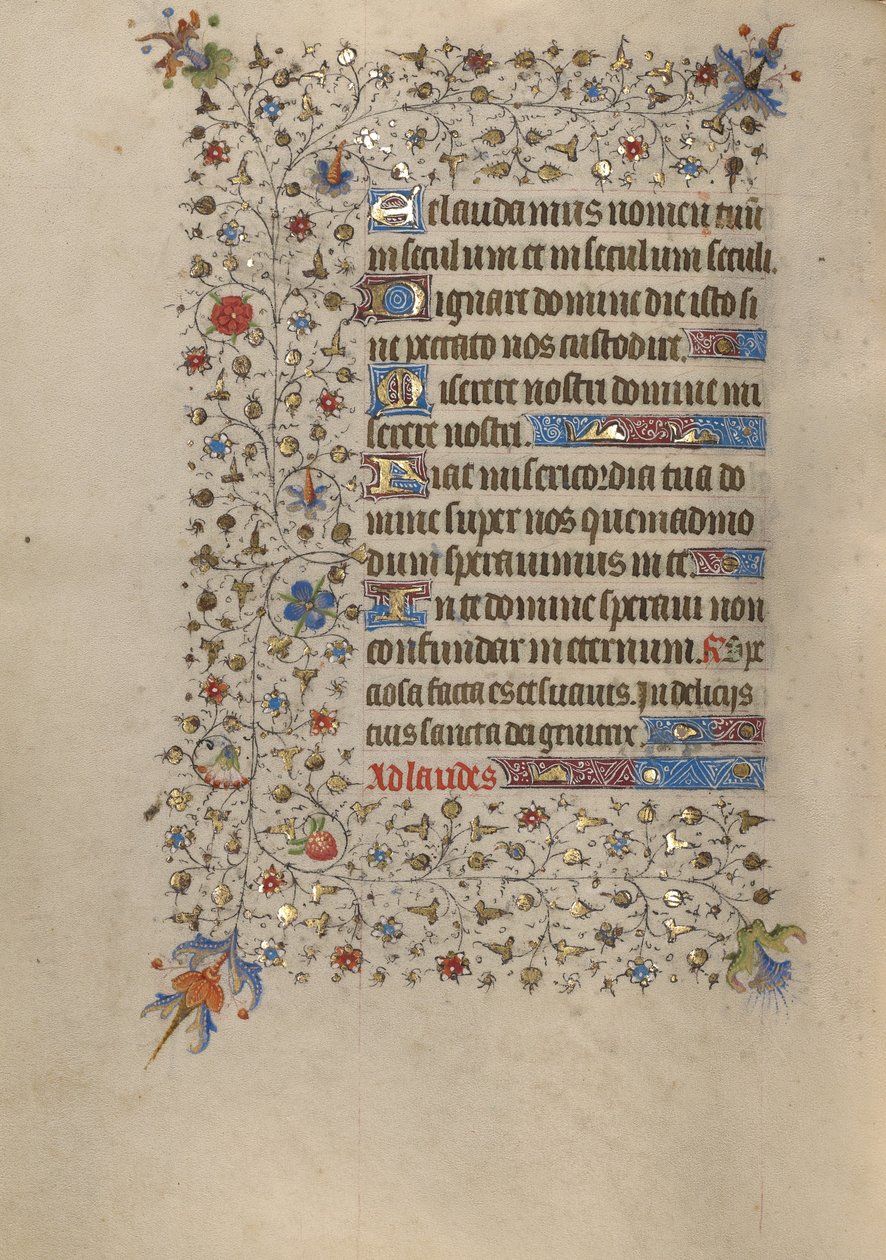 Et laudamus nomen tuū
in seculum et in seculum seculi.
Dignare domine die isto si
ne peccato nos custodire.
Miserere nostri domine mi
serere nostri.
Fiat misericordia tua do
mine super nos quemadmo
dum sperauimus in te.
In te domine speraui non
confundar in eternum. R. Spe
ciosa facta es et suauis. In delicijs
tuis sancta dei genitrix.
Ad laudes